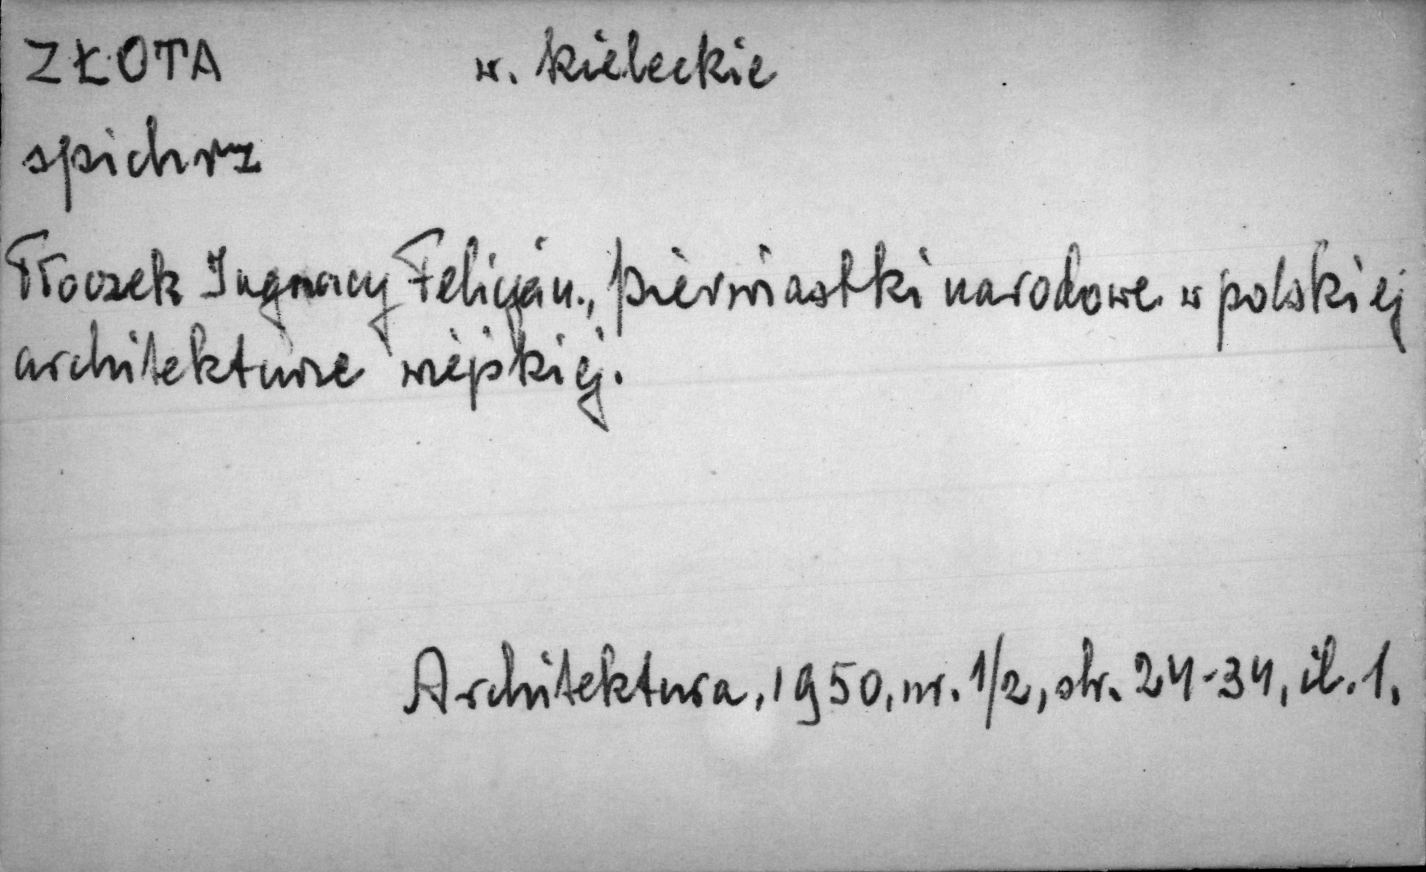 ZŁOTA w. kieleckie
spichrz
Tłoczek Ingnacy Felicjan., pierwiastki narodowe w polskiej
architekturze wiejskiej.
Architektura, 1950, nr. 1/2, str. 24-34, il. 1.